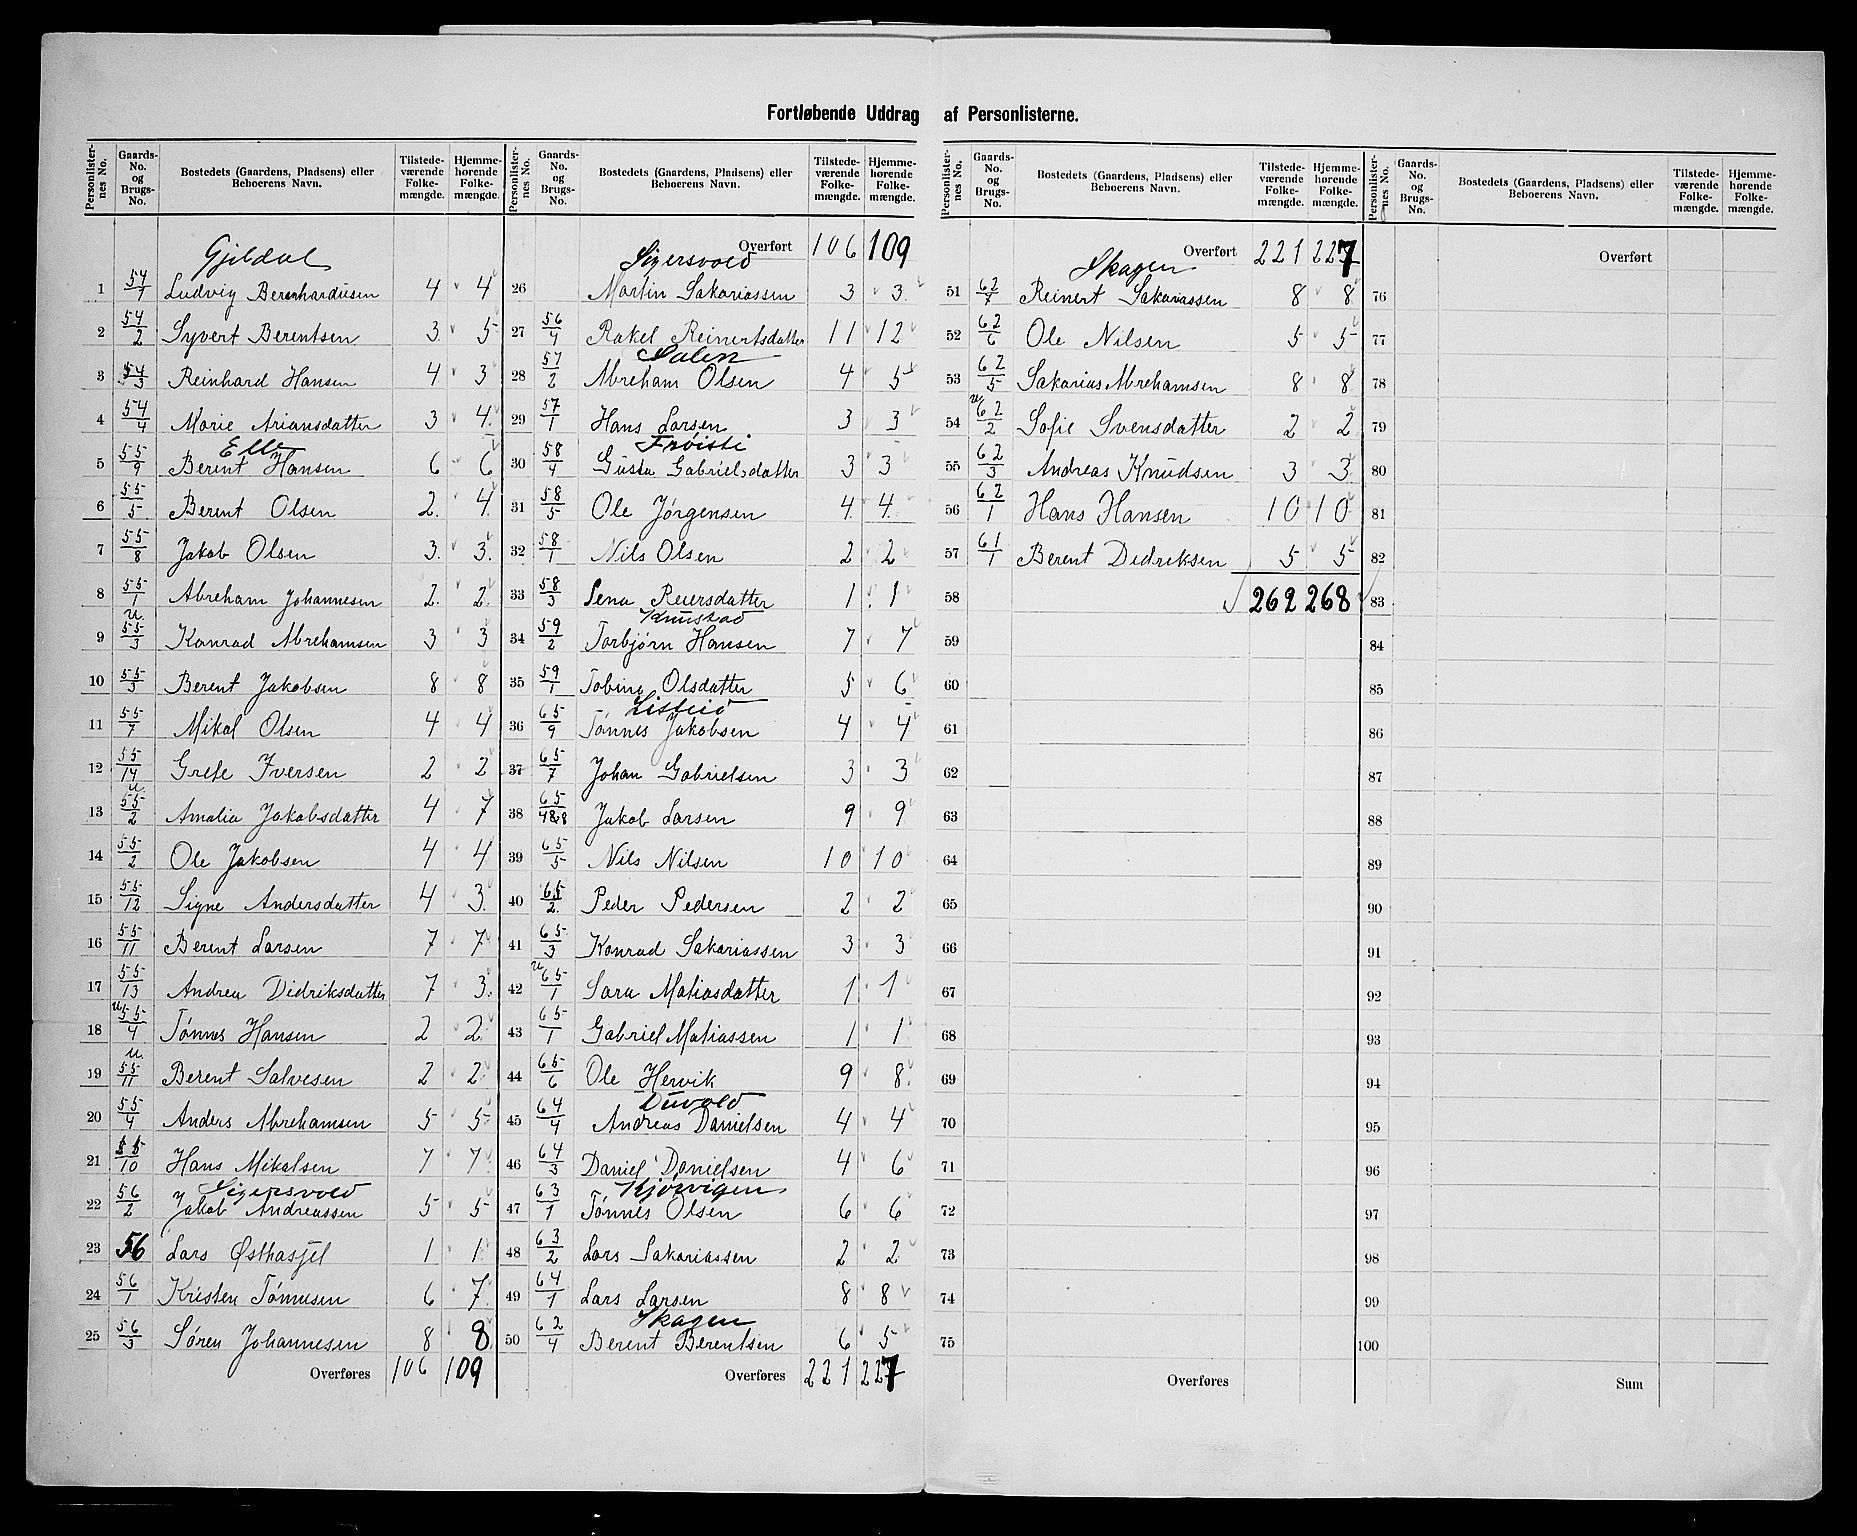 Fortløbende Uddrag af Personlisterne.
Personlisternes No. Gaards-No. og Brugs-No. Bostedets (Gaardens, Pladsens) eller Beboerens Navn. Tilstedeværende Folkemængde. Hjemmehørende Folkemængde.
Gjeldal
1 54/1 Ludvig Berenhardusen 4 4
2 54/2 Syvert Berentsen 3 5
3 54/3 Reinhard Hansen 4 3
4 54/4 Marie Ariansdatter 3 4
Elle
5 55/9 Berent Hansen 6 6
6 55/5 Berent Olsen 2 4
7 55/8 Jakob Olsen 3 3
8 55/1 Abreham Johannesen 2 2
9 u. 55/3 Konrad Abrehamsen 3 3
10 55/3 Berent Jakobsen 8 8
11 55/7 Mikal Olsen 4 4
12 55/14 Grete Iversen 2 2
13 u. 55/2 Amalia Jakobsdatter 4 7
14 55/2 Ole Jakobsen 4 4
15 55/12 Signe Andersdatter 4 3
16 55/11 Berent Larsen 7 7
17 55/13 Andrea Didriksdatter 7 3
18 u 55/4 Tønnes Hansen 2 2
19 u. 55/11 Berent Salvesen 2 2
20 55/4 Anders Abrehamsen 5 5
21 55/10 Hans Mikalsen 7 7
Sigersvold
22 56/2 Jakob Andreassen 5 5
23 56 Lars Østhasjel 1 1
24 56/1 Kristen Tønnesen 6 7
25 56/3 Søren Johannesen 8 8
Overføres 106 109
Personlisternes No. Gaards-No. og Brugs-No. Bostedets (Gaardens, Pladsens) eller Beboerens Navn. Tilstedeværende Folkemængde. Hjemmehørende Folkemængde.
Overført 106 109
Sigersvold
26 Martin Sakariassen 3 3
27 56/4 Rakel Reinertsdatter 11 12
Dalen
28 57/2 Abreham Olsen 4 5
29 57/1 Hans Larsen 3 3
Frøisti
30 58/4 Gusta Gabrielsdatter 3 3
31 58/5 Ole Jørgensen 4 4
32 58/1 Nils Olsen 2 2
33 58/3 Lena Reiersdatter 1 1
Knustad
34 59/2 Torbjørn Hansen 7 7
35 59/1 Tobine Olsdatter 5 6
Listeid
36 65/9 Tønnes Jakobsen 4 4
37 65/7 Johan Gabrielsen 3 3
38 65/4&8 Jakob Larsen 9 9
39 65/5 Nils Nilsen 10 10
40 65/2 Peder Pedersen 2 2
41 65/3 Konrad Sakariassen 3 3
42 u 65/1 Sara Matiasdatter 1 1
43 65/1 Gabriel Matiassen 1 1
44 65/6 Ole Hervik 9 8
Duvold
45 64/4 Andreas Danielsen 4 4
46 64/3 Daniel Danielsen 4 6
Kjørvigen
47 63/1 Tønnes Olsen 6 6
48 63/2 Lars Sakariassen 2 2
49 64/1 Lars Larsen 8 8
Skagen
50 62/4 Berent Berentsen 6 5
Overføres 221 227
Personlisternes No. Gaards-No. og Brugs-No. Bostedets (Gaardens, Pladsens) eller Beboerens Navn. Tilstedeværende Folkemængde. Hjemmehørende Folkemængde.
Overført 221 227
Skagen
51 62/7 Reinert Sakariassen 8 8
52 62/6 Ole Nilsen 5 5
53 62/5 Sakarias Abrehamsen 8 8
54 u 62/2 Sofie Svensdatter 2 2
55 62/3 Andreas Knudsen 3 3
56 62/1 Hans Hansen 10 10
57 61/1 Berent Didriksen 5 5
58 262 268
59
60
61
62
63
64
65
66
67
68
69
70
71
72
73
74
75
Overføres
Personlisternes No. Gaards-No. og Brugs-No. Bostedets (Gaardens, Pladsens) eller Beboerens Navn. Tilstedeværende Folkemængde. Hjemmehørende Folkemængde.
Overført
76
77
78
79
80
81
82
83
84
85
86
87
88
89
90
91
92
93
94
95
96
97
98
99
100
Sum